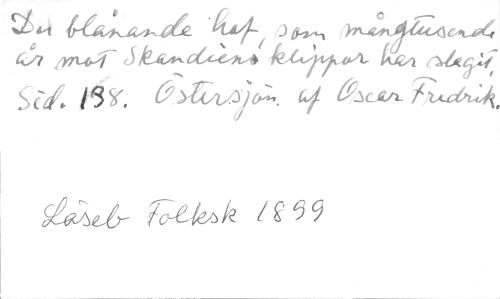 Du blånande haf, som mångtusende
år mot Skandiens klippor har slagit,
Sid. 138. Östersjön. af Oscar Fredrik.
Läseb Folksk 1899